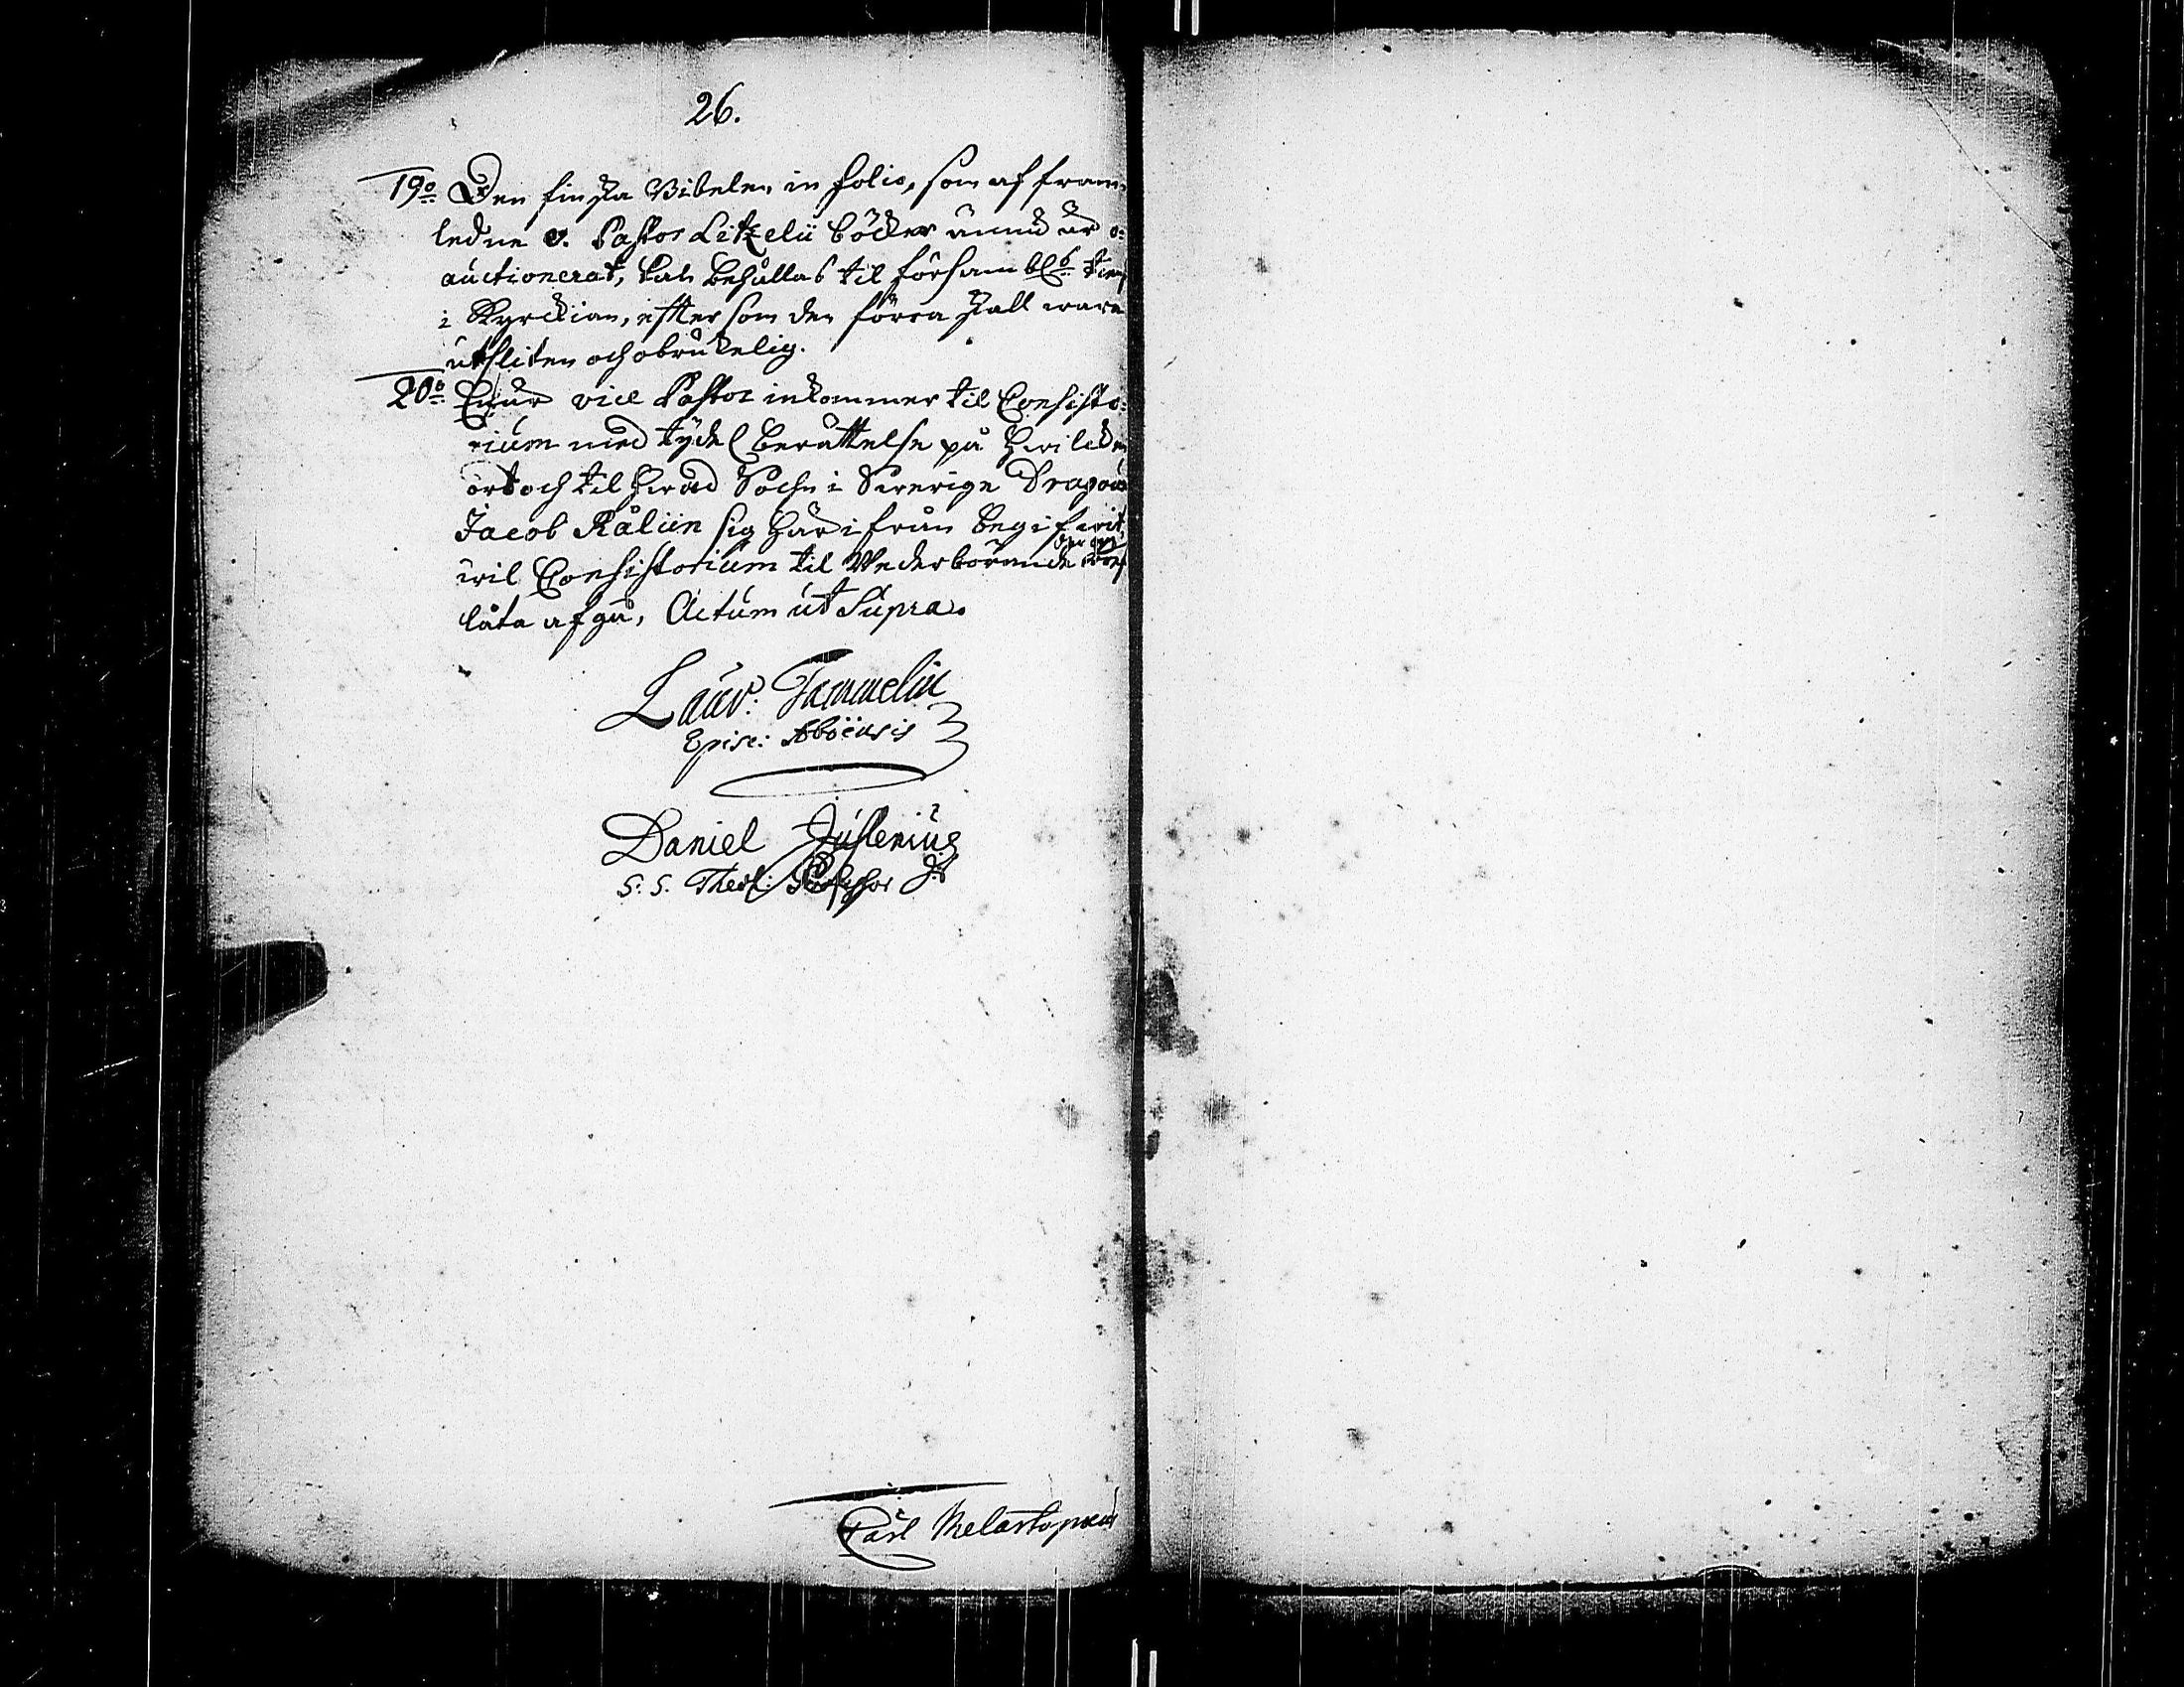 26.
19o Den finska Bibelen in folio, som af fram-
ledne v. Pastor Litzelii böcker ännu är o-
auctionerat, kan behållas til församl:s tien
i Kyrckian, efter som den förra skall wara
utsliten och obrukelig.
20o När vice Pastor inkommer til Consisto-
rium med tydel berättelse på hwilcken
ort och til hwad Sochn i Swerige Dragou
Jacob Råliin sig härifrån begifwit,
wil Consistorium til Wederbörande
låta afgå, Actum ut Supra.
Laur: Tammelin
Episc: Aböensis
Daniel Juslenius
S: S. Theol: Professor
Carl Melartopæus